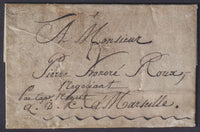 À Monsieur
Pierre Honoré Roux,
Negotiant
Par Cap.
a Marseille.